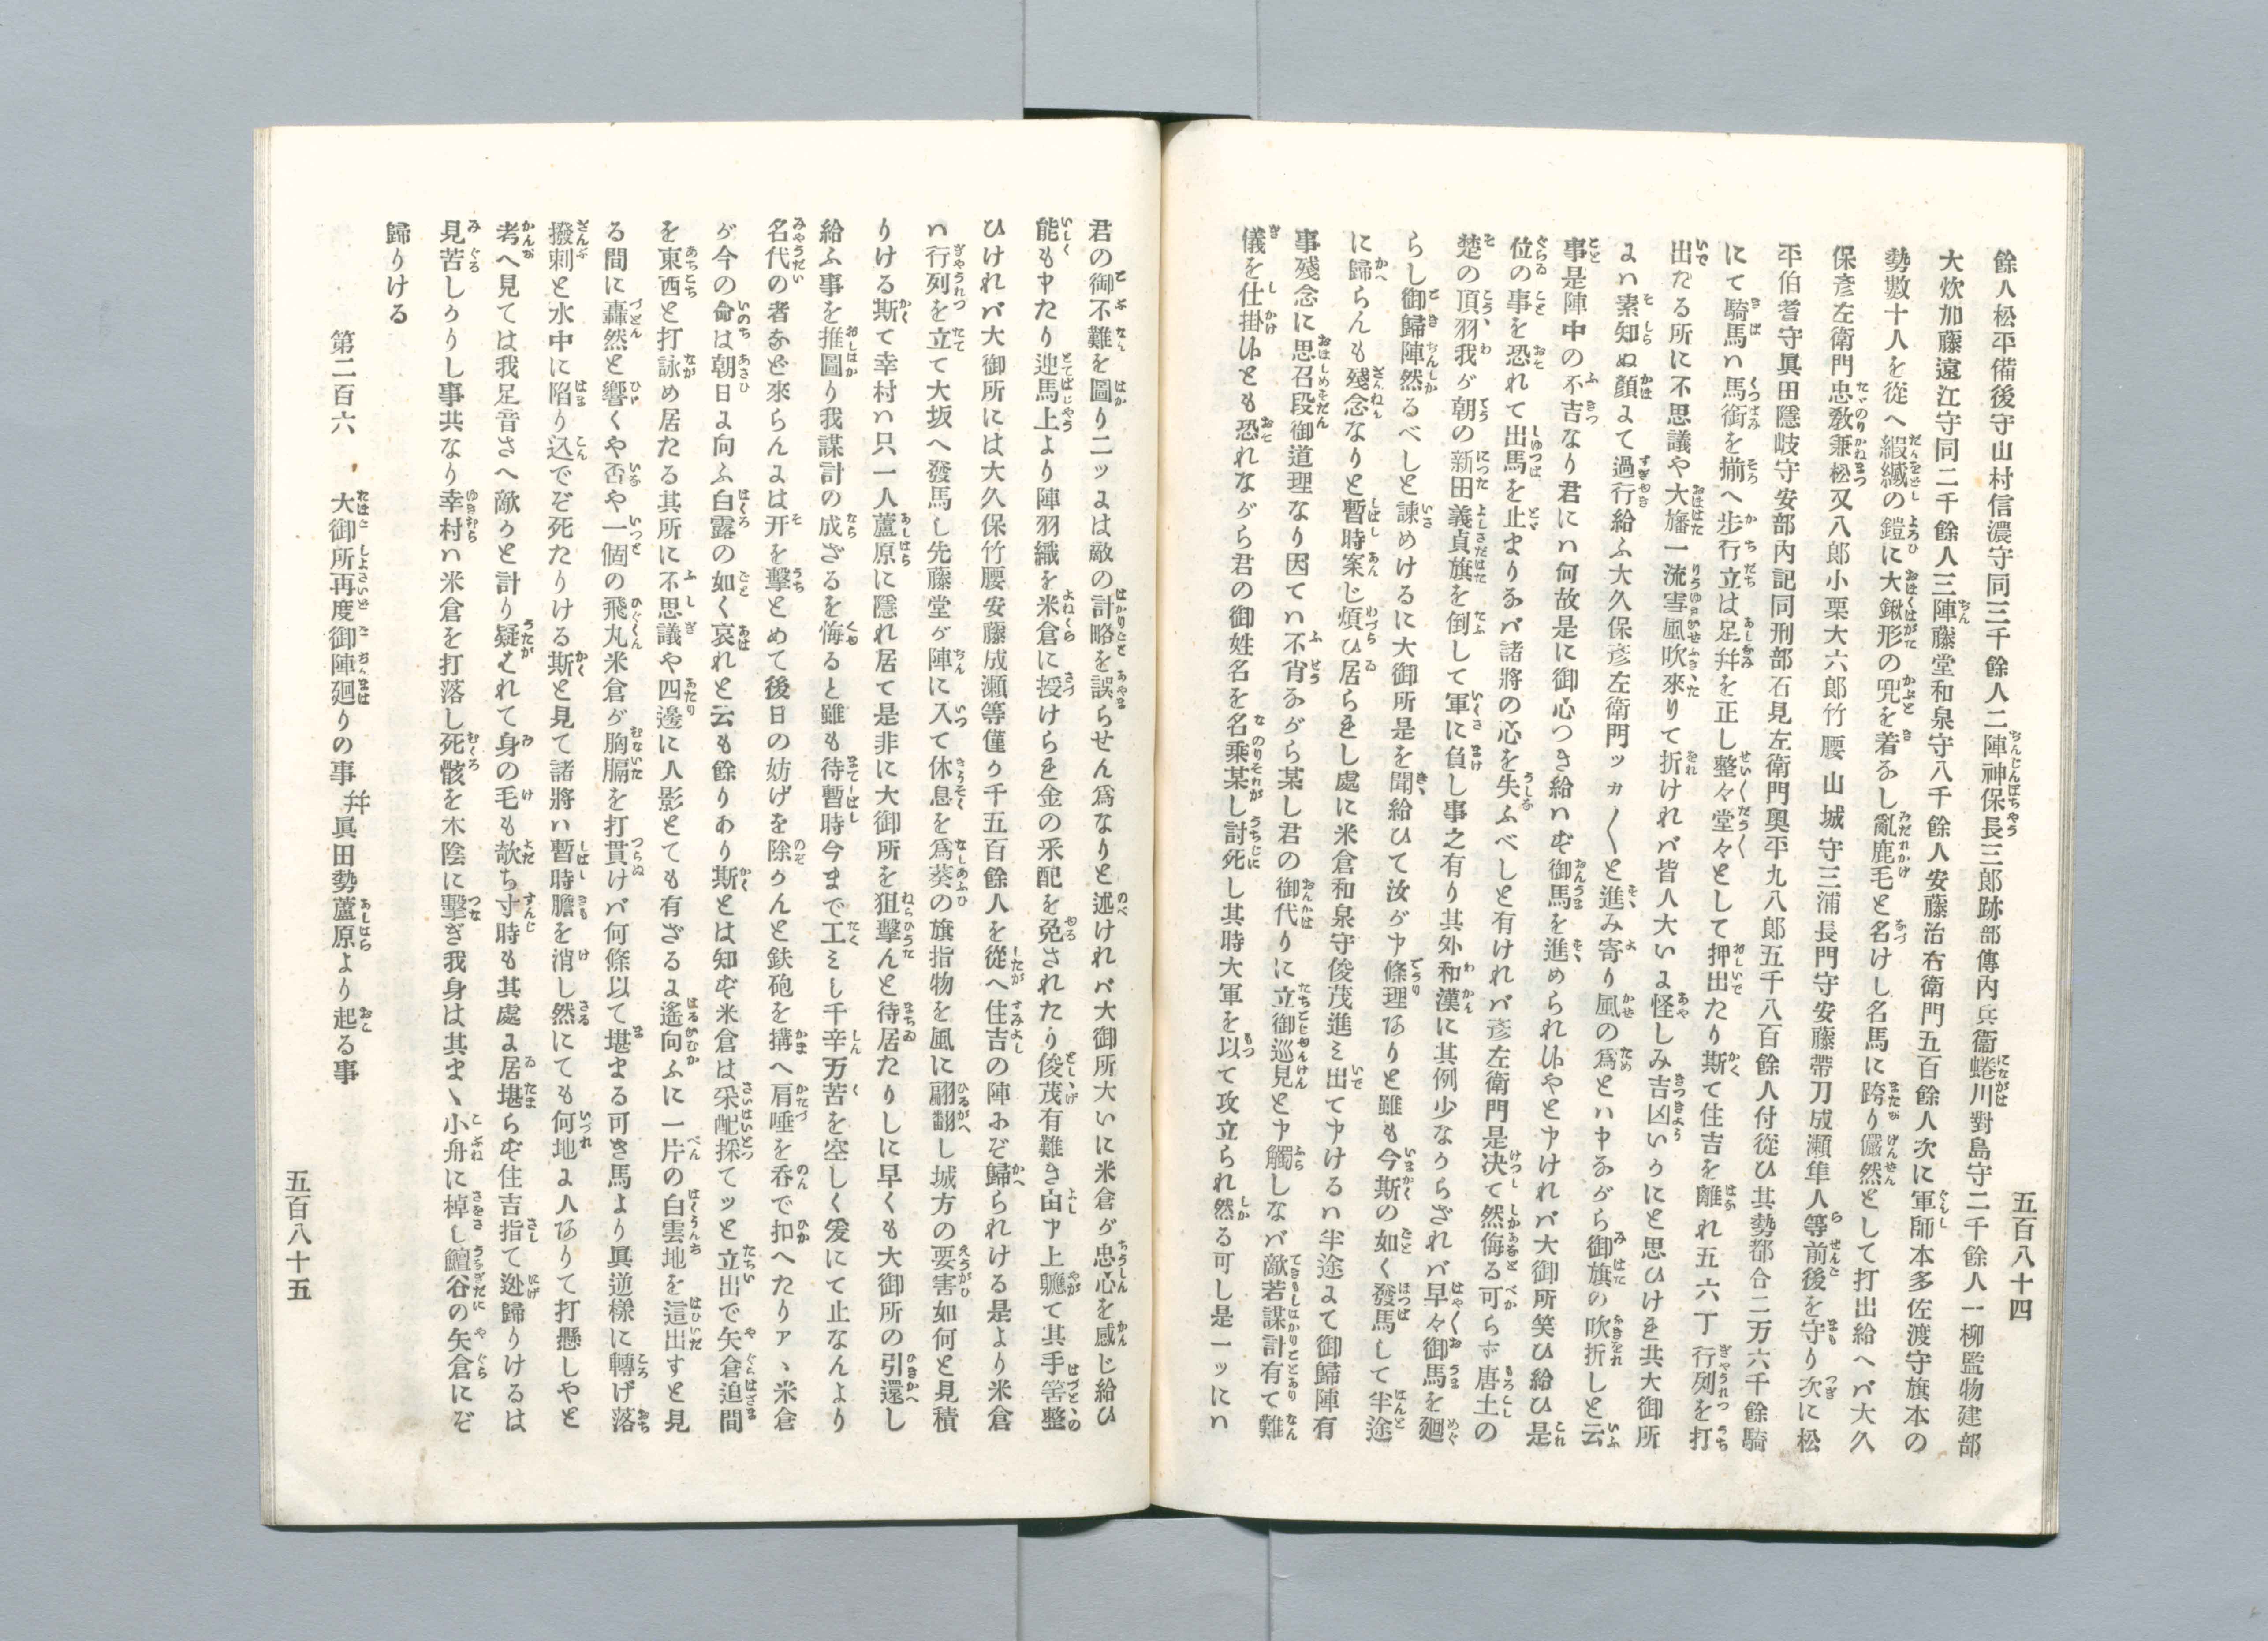 五百八十四
餘人松平備後守山村信濃守同三千餘人二陣神保長三郎跡部傳內兵衞蜷川對島守二千餘人一柳監物建部
大炊加藤遠江守同二千餘人三陣藤堂和泉守八千餘人安藤治右衛門五百餘人次に軍師本多佐渡守旗本の
勢數十人を從へ緞縅の鎧に大鍬形の兜を着なし亂鹿毛と名けし名馬に跨り儼然として打出給へバ大久
保彦左衛門忠敎兼松又八郎小栗大六郎竹腰山城守三浦長門守安藤帶刀成瀬隼人等前後を守り次に松
平伯耆守眞田隱岐守安部內記同刑部石見左衛門奧平九八郎五千八百餘人付從ひ其勢都合二万六千餘騎
にて騎馬ハ馬銜を揃へ步行立は足幷を正し整々堂々として押出たり斯て住吉を離れ五六丁行列を打
出たる所に不思議や大旛一流雪風吹來りて折けれバ皆人大いに怪しみ吉凶いかにと思ひけき共大御所
にハ素知ぬ顏にて過行給ふ大久保彦左衛門ツカ〱と進み寄り風の爲とハ申ながら御旗の吹折しと云
事是陣中の不吉なり君にハ何故是に御心つき給ハぞ御馬を進められ候やと申けれバ大御所笑ひ給ひ是
位の事を恐れて出馬を止まりなバ諸將の心を失ふべしと有けれバ彦左衛門是决て然侮る可らず唐土の
楚の項羽我が朝の新田義貞旗を倒して軍に負し事之有り其外和漢に其例少なからざれバ早々御馬を廻
らし御歸陣然るべしと諫めけるに大御所是を聞給ひて汝が申條理ありと雖も今斯の如く發馬して半途
に歸らんも殘念なりと暫時案じ煩ひ居らきし處に米倉和泉守俊茂進ミ出て申けるハ半途にて御歸陣有
事殘念に思召段御道理なり因てハ不肖ながら某し君の御代りに立御巡見と申觸しなバ敵若謀計有て難
儀を仕掛候とも恐れながら君の御姓名を名乘某し討死し其時大軍を以て攻立られ然る可し是一ッにハ
君の御不難を圖り二ッには敵の計略を誤らせん爲なりと述けれバ大御所大いに米倉が忠心を感じ給ひ
能も申たり迚馬上より陣羽織を米倉に授けらき金の采配を免されたり俊茂有難き由申上軈て其手筈整
ひけれバ大御所には大久保竹腰安藤成瀬等僅か千五百餘人を從へ住吉の陣みぞ歸られける是より米倉
ハ行列を立て大坂へ發馬し先藤堂が陣に入て休息を爲葵の旗指物を風に翩翻し城方の要害如何と見積
りける斯て幸村ハ只一人蘆原に隱れ居て是非に大御所を狙擊んと待居たりしに早くも大御所の引還し
給ふ事を推圖り我謀計の成ざるを悔ると雖も待暫時今まで工ミし千辛万苦を空しく爰にて止なんより
名代の者なと來らんには幵を擊とめて後日の妨げを除かんと鉄砲を搆へ肩唾を呑で扣へたりア、米倉
が今の命は朝日に向ふ白露の如く哀れと云も餘りあり斯とは知ぞ米倉は采配採てッと立出で矢倉迫間
を東西と打詠め居たる其所に不思議や四邊に人影とても有ざるに遙向ふに一片の白雲地を這出すと見
る間に轟然と響くや否や一個の飛丸米倉が胸膈を打貫けバ何條以て堪まる可き馬より眞逆樣に轉げ落
撥剌と水中に陷り込でぞ死たりける斯と見て諸將ハ暫時膽を消し然にても何地に人ありて打懸しやと
考へ見ては我足音さへ敵かと計り疑はれて身の毛も欹ち寸時も其處に居堪らぞ住吉指て迯歸りけるは
見苦しかりし事共なり幸村ハ米倉を打落し死骸を木陰に擊ぎ我身は其まゝ小舟に棹し鱣谷の矢倉にぞ
歸りける
第二百六 大御所再度御陣廻りの事 幷 眞田勢蘆原より起る事
五百八十五